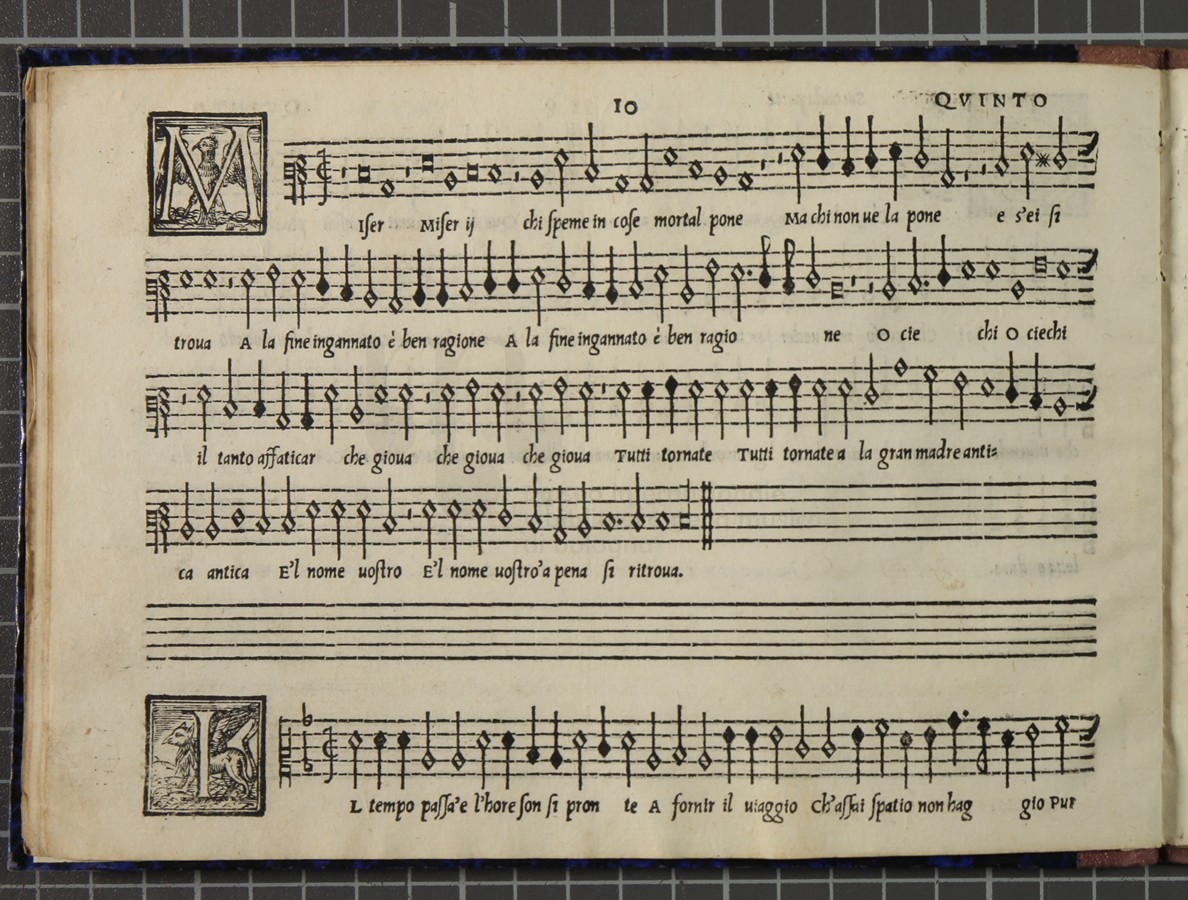 10 QVINTO
MIſer Miſer ij chi ſpeme in coſe mortal pone Ma chi non ue la pone e s'ei ſi
troua A la fine ingannato è ben ragione A la fine ingannato è ben ragio ne O cie chi O ciechi
il tanto affaticar che gioua che gioua che gioua Tutti tornate Tutti tornate a la gran madre anti
ca antica E'l nome uoſtro E'l nome uoſtro'a pena ſi ritroua.
IL tempo paſſa'e l'hore ſon ſi pron te A fornir il uiaggio Ch'aſſai ſpatio non hag gio Pur